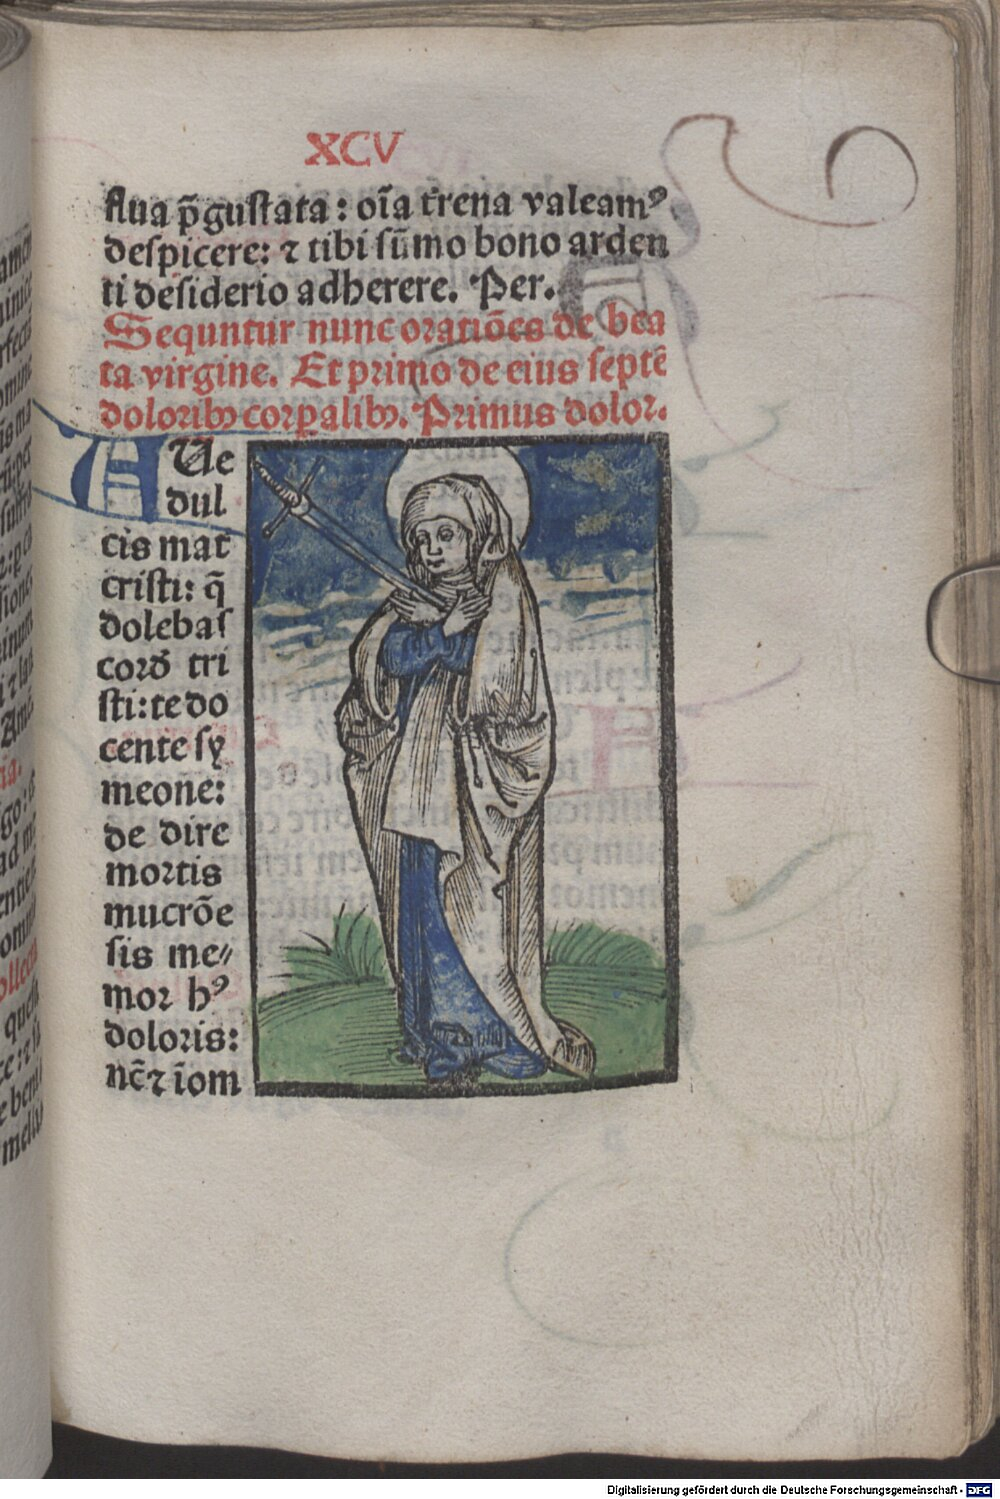 XCV
flua p̄gustata: oīa t̄rena valeamꝰ
despicere: ⁊ tibi sūmo bono arden
ti desiderio adherere. Per.
Sequntur nunc oratiōes de bea
ta virgine. Et primo de eius septē
doloribꝫ corꝑalibꝫ. Primus dolor.
A Ue
dul
cis mat
cristi: q̄
dolebas
cord̄ tri
sti: te do
cente sy
meone:
de dire
mortis
mucrōe
sis me⸗
mor hꝰ
doloris:
nc̄ ⁊ īom
Digitalisierung gefördert durch die Deutsche Forschungsgemeinschaft - DFG